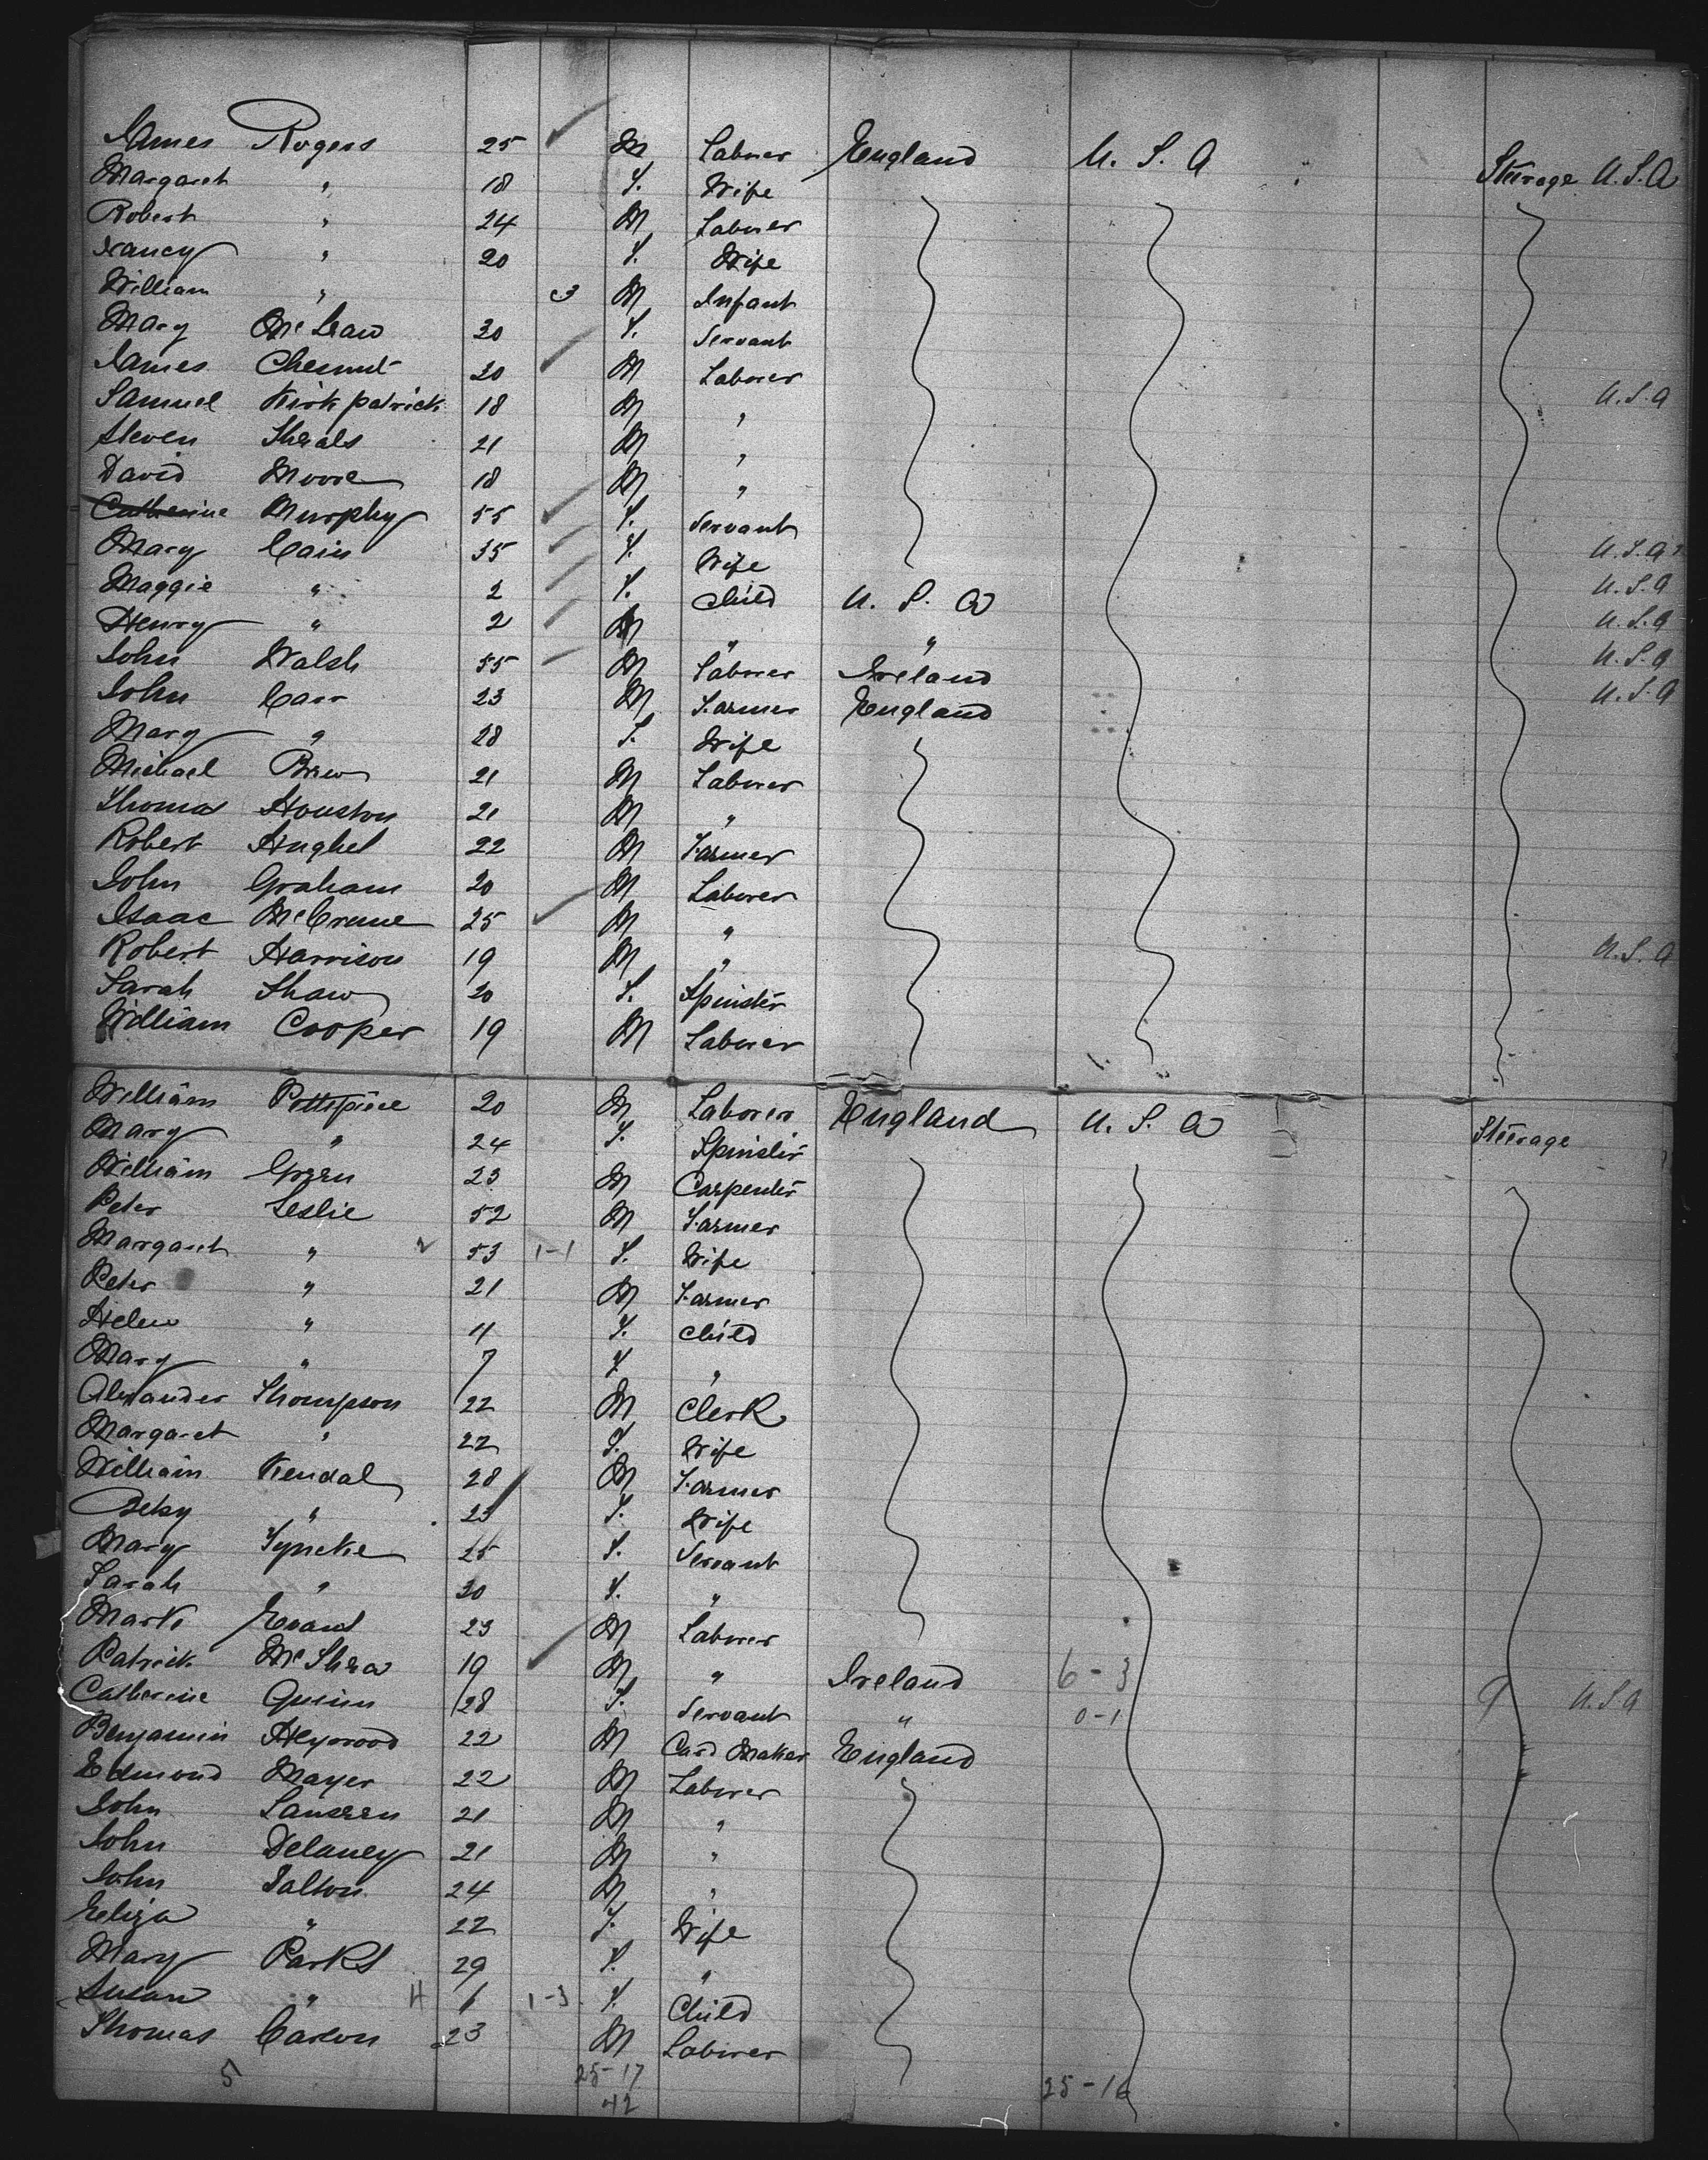 James Rogers 25 M Laborer England U. S. A Steerage U.S.A
Margaret " 18 F. Wife
Robert " 24 M Laborer
Nancy " 20 F. Wife
William " 3 M Infant
Mary 20 F. Servant
James Chesnut 20 M Laborer
Samuel Kirkpatrick 18 M " U.S.A
Steven Sheals 21 M "
David Moore 18 M "
Catherine Murphy 55 F. Servant
Mary Cain 35 F. Wife U.S.A
Maggie " 2 F. Child U. S. A U.S.A
Henry " 2 M " " U.S.A
John Walsh 55 M Laborer Ireland U.S.A
John Carr 23 M Farmer England U.S.A
Mary " 28 F. Wife
Michael Brew 21 M Laborer
Thomas Houston 21 M "
Robert Hughel 22 M Farmer
John Graham 20 M Laborer
Isaac 25 M "
Robert Harrison 19 M " U.S.A
Sarah Shaw 20 F. Spinster
William Cooper 19 M Laborer
William 20 M Laborer England U. S. A Steerage
Mary " 24 F. Spinster
William Green 23 M Carpenter
Peter Leslie 52 M Farmer
Margaret " 2 53 1-1 F. Wife
Peter " 21 M Farmer
Helen " 4 F. Child
Mary " 7 F "
Alexander Thompson 22 M Clerk
Margaret " 22 F. Wife
William Kendal 28 M Farmer
Betsy " 23 F. Wife
Mary 25 F. Servant
Sarah " 20 F. "
Mark Evans 23 M Laborer
Patrick McShea 19 M " Ireland 6-3
Catherine Quinn 28 F. Servant " 0-1 9 U.S.A
Benjamin Heywood 22 M Card Maker England
Edmond Mayer 22 M Laborer
John 21 M "
John Delaney 21 M "
John Dalton 24 M "
Eliza " 22 F. Wife
Mary Parks 29 F. "
Susan " H 6 1-3 F. Child
Thomas Carson 23 M Laborer
5 25-17 25-16
42